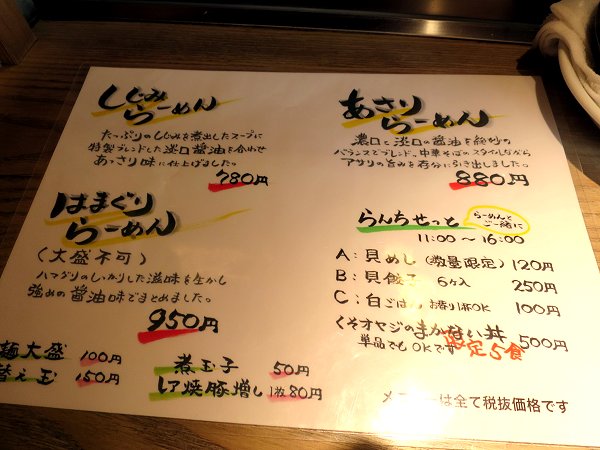 しじみ
らーめん
たっぷりのしじみを煮出したスープに
特製ブレンドした淡口醤油を合わせ
あっさり味に仕上げました。
780円
あさり
らーめん
濃口と淡口の醤油を絶妙の
バランスでブレンド。中華そばのスタイルしながら
アサリの旨みを存分に引き出しました。
880円
はまぐり
らーめん
(大盛不可)
ハマグリのしっかりした滋味を生かし
強めの醤油味でまとめました。
950円
麺大盛 100円
替え玉 150円
煮玉子 50円
レア焼豚増し 1枚80円
らんちせっと
らーめんと
ご一緒に
11:00〜16:00
A:貝めし(数量限定) 120円
B:貝餃子 6ヶ入 250円
C:白ごはん お替り1杯OK 100円
くそオヤジのまかない丼 500円
単品でもOKです 限定5食
は全て税抜価格です